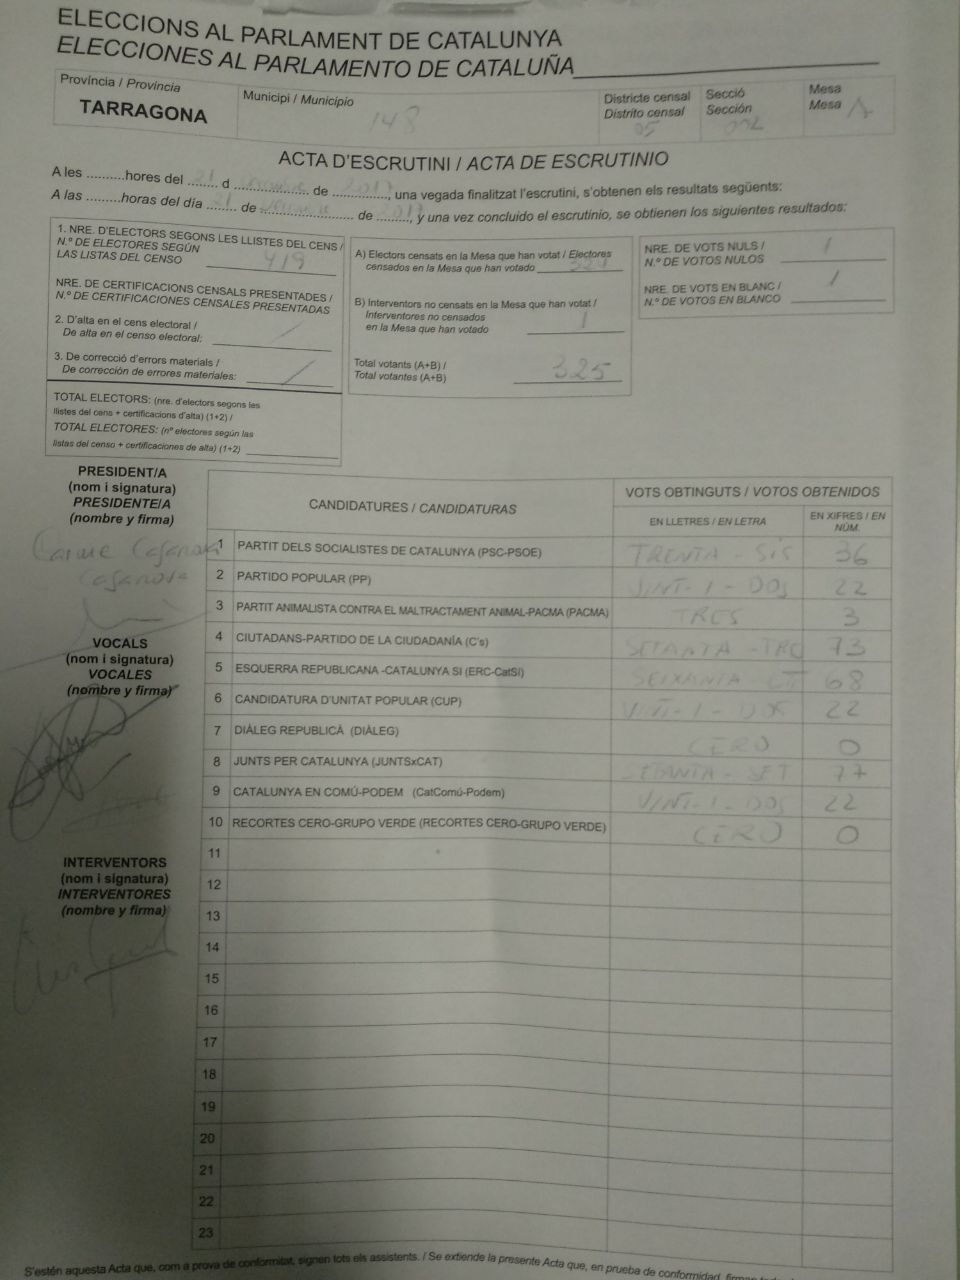 ELECCIONS AL PARLAMENT DE CATALUNYA
ELECCIONES AL PARLAMENTO DE CATALUÑA
Província / Provincia
TARRAGONA
Municipi / Municipio
148
Districte censal
Distrito censal
05
Secció
Sección
002
Mesa
Mesa A
ACTA D'ESCRUTINI / ACTA DE ESCRUTINIO
A les ..........hores del 21 d ................... de 2017, una vegada finalitzat l'escrutini, s'obtenen els resultats següents:
A las .........horas del día 21 de ........................ de 2017, y una vez concluido el escrutinio, se obtienen los siguientes resultados:
1. NRE. D'ELECTORS SEGONS LES LLISTES DEL CENS /
N.º DE ELECTORES SEGÚN
LAS LISTAS DEL CENSO 419
NRE. DE CERTIFICACIONS CENSALS PRESENTADES /
N.º DE CERTIFICACIONES CENSALES PRESENTADAS
2. D'alta en el cens electoral /
De alta en el censo electoral: /
3. De correcció d'errors materials /
De corrección de errores materiales: /
TOTAL ELECTORS: (nre. d'electors segons les
llistes del cens + certificacions d'alta) (1+2) /
TOTAL ELECTORES: (nº electores según las
listas del censo + certificaciones de alta) (1+2)
A) Electors censats en la Mesa que han votat / Electores
censados en la Mesa que han votado 324
B) Interventors no censats en la Mesa que han votat /
Interventores no censados
en la Mesa que han votado 1
Total votants (A+B) /
Total votantes (A+B) 325
NRE. DE VOTS NULS /
N.º DE VOTOS NULOS 1
NRE. DE VOTS EN BLANC /
N.º DE VOTOS EN BLANCO 1
PRESIDENT/A
(nom i signatura)
PRESIDENTE/A
(nombre y firma)
Carme
Casanova
VOCALS
(nom i signatura)
VOCALES
(nombre y firma)
INTERVENTORS
(nom i signatura)
INTERVENTORES
(nombre y firma)
CANDIDATURES / CANDIDATURAS
VOTS OBTINGUTS / VOTOS OBTENIDOS
EN LLETRES / EN LETRA
EN XIFRES / EN NÚM.
1 PARTIT DELS SOCIALISTES DE CATALUNYA (PSC-PSOE) TRENTA-SIS 36
2 PARTIDO POPULAR (PP) VINT-I-DOS 22
3 PARTIT ANIMALISTA CONTRA EL MALTRACTAMENT ANIMAL-PACMA (PACMA) TRES 3
4 CIUTADANS-PARTIDO DE LA CIUDADANÍA (C's) SETANTA-TRE 73
5 ESQUERRA REPUBLICANA -CATALUNYA SI (ERC-CatSI) SEIXANTA 68
6 CANDIDATURA D'UNITAT POPULAR (CUP) VINT-I-DOS 22
7 DIÀLEG REPUBLICÀ (DIÀLEG) CERO 0
8 JUNTS PER CATALUNYA (JUNTSxCAT) SETANTA-SET 77
9 CATALUNYA EN COMÚ-PODEM (CatComú-Podem) VINT-I-DOS 22
10 RECORTES CERO-GRUPO VERDE (RECORTES CERO-GRUPO VERDE) CERO 0
11
12
13
14
15
16
17
18
19
20
21
22
23
S'estén aquesta Acta que, com a prova de conformitat, signen tots els assistents. / Se extiende la presente Acta que, en prueba de conformidad,